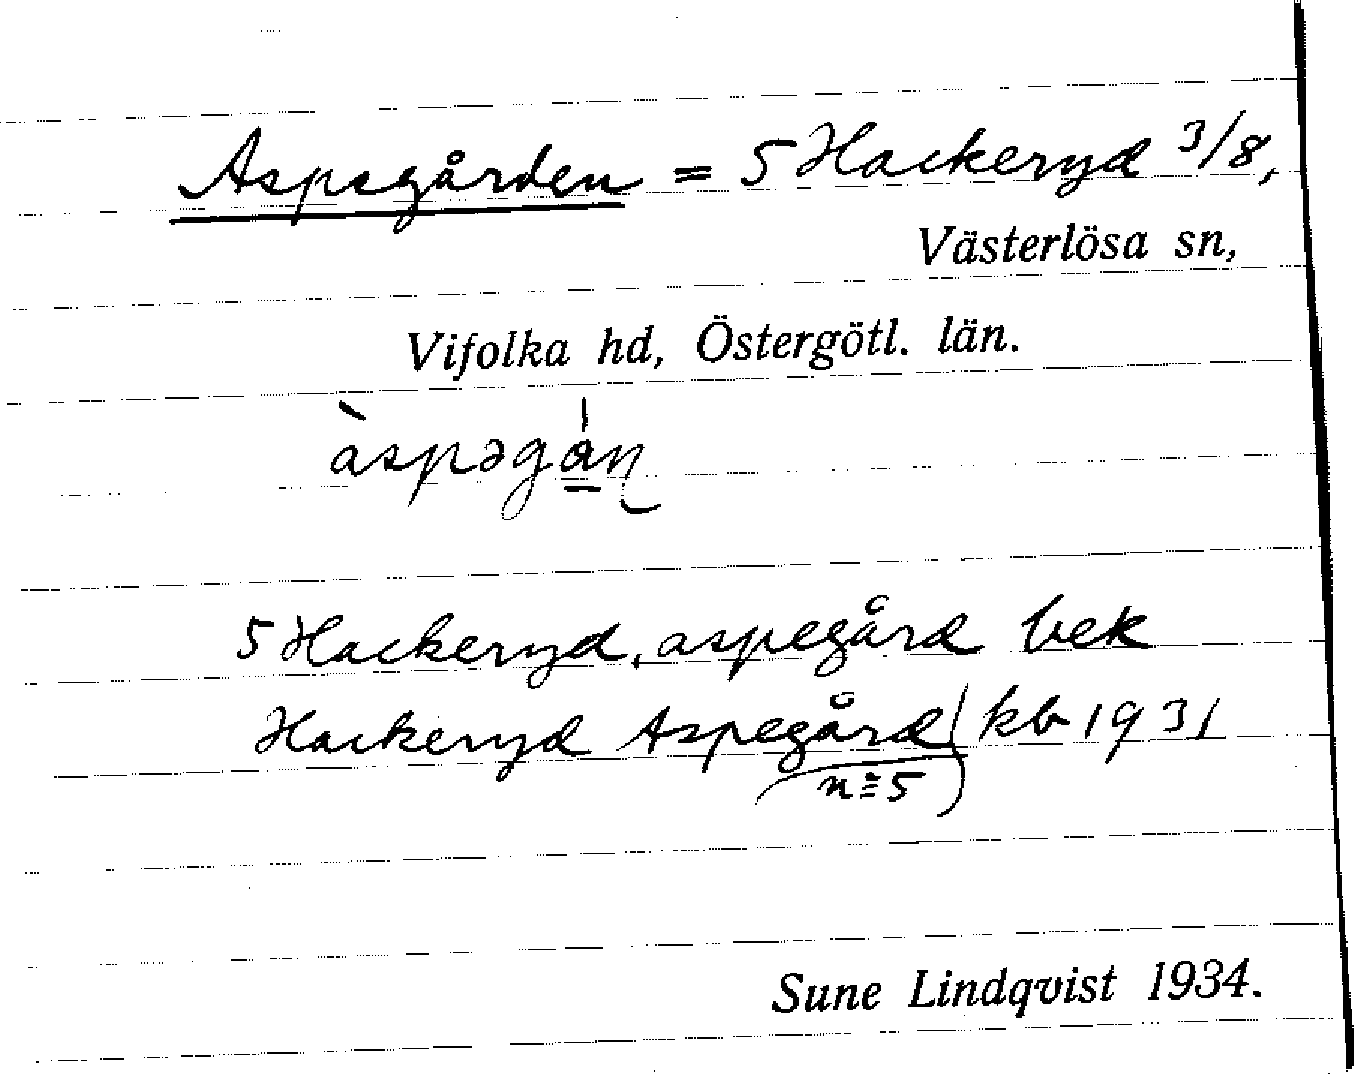 Aspegården = 5 Hackeryd 3/8,
Västerlösa sn,
Vifolka hd, Östergötl. län.
àspəgán
5 Hackeryd, aspegård bek
Hackeryd Aspegård kb 1931
n≡5
Sune Lindqvist 1934.